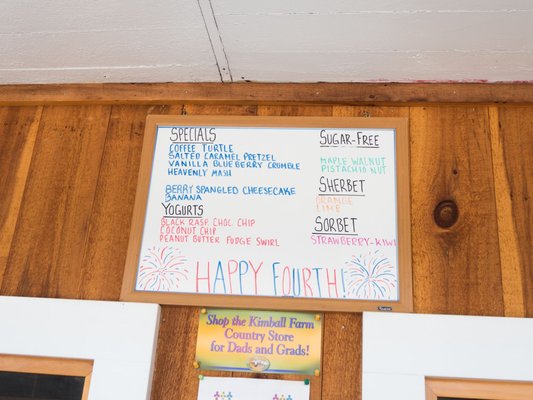 SPECIALS
COFFEE TURTLE
SALTED CARAMEL PRETZEL
VANILLA BLUEBERRY CRUMBLE
HEAVENLY MASH
BERRY SPANGLED CHEESECAKE
BANANA
YOGURTS
BLACK RASP. CHOC. CHIP
COCONUT CHIP
PEANUT BUTTER FUDGE SWIRL
SUGAR-FREE
MAPLE WALNUT
PISTACHIO NUT
SHERBET
ORANGE
LIME
SORBET
STRAWBERRY-KIWI
HAPPY FOURTH!
Shop the Kimball Farm
Country Store
for Dads and Grads!